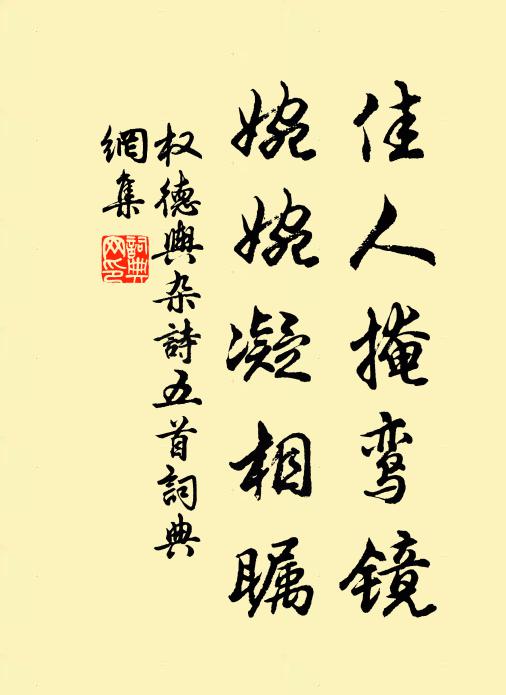 佳人掩鸾镜
婉婉凝相瞩
权德舆杂詩五首詞典
網集
詞典网印